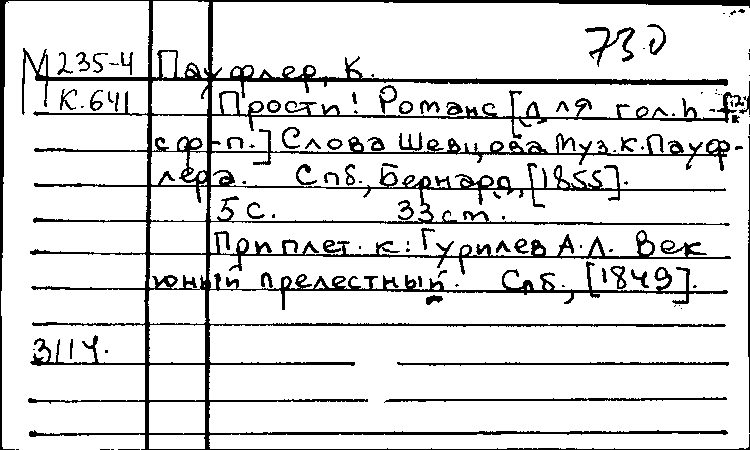 730
М 235-4 Пауфлер, К.
К.641 Прости! Романс [для гол. h -
с ф-п.] Слова Шевцова Муз. К. Пауф-
лера. Спб., Бернард, [1855].
5 с. 33 cm.
Приплет. к: Гурилев А.Л. Век
юный прелестный. Спб., [1849].
3114.